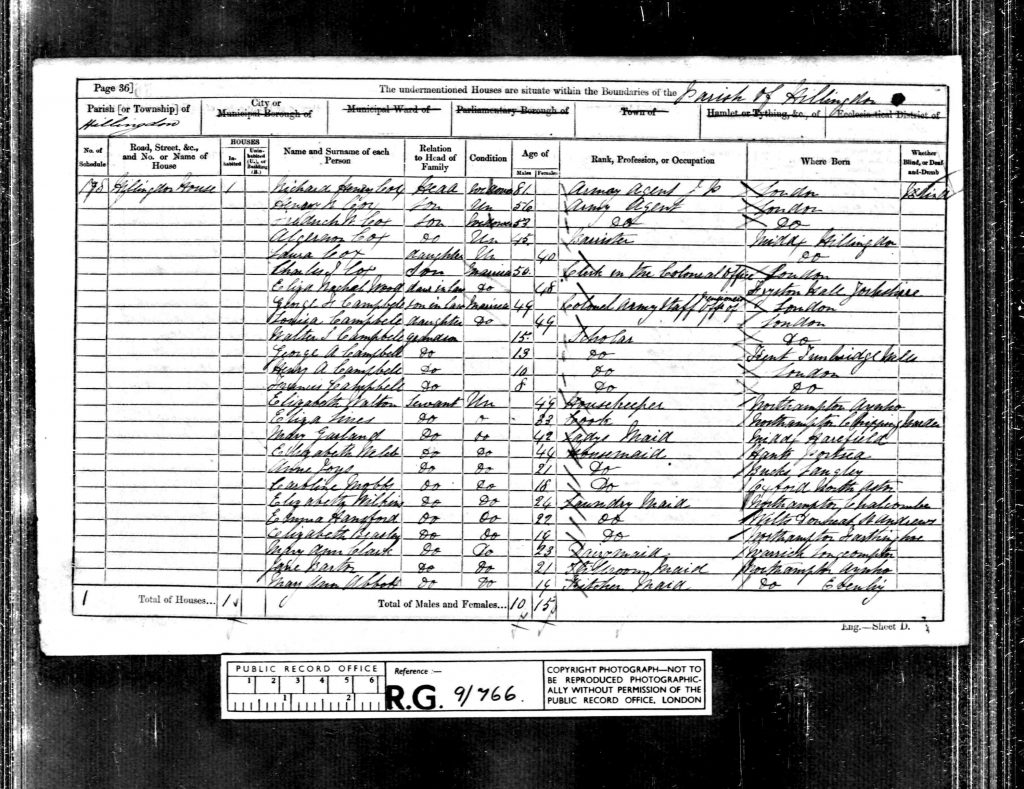 Page 36] The undermentioned Houses are situate within the Boundaries of the Parish of Hillingdon
Parish [or Township] of Hillingdon
City or Municipal Borough of
Municipal Ward of
Parliamentary Borough of
Town of
Hamlet or Tything, &c., of
Ecclesiastical District of
No. of Schedule
Road, Street, &c., and No. or Name of House
HOUSES
Inhabited
Uninhabited (U.), or Building (B.)
Name and Surname of each Person
Relation to Head of Family
Condition
Age of
Males
Females
Rank, Profession, or Occupation
Where Born
Whether Blind, or Deaf-and-Dumb
Hillingdon House 1 Richard Henry Cox Head 81 Army Agent London Blind
Henry Cox Son Un 56 Army Agent London
Frederick Cox Son 53 Do Do
Algernon Cox Do Un 45 Barrister Middx Hillingdon
Laura Cox daughter Un 40 Do
Charles J Cox Son Married 50 Clerk in the Colonial Office London
Eliza Rachel Do Do 48 Hall Yorkshire
George Campbell son in law Married 49 Colonel Army Staff London
Louisa Campbell daughter Do 49 London
Walter J Campbell grandson 15 Scholar Do
George A Campbell Do 13 Do Kent Tunbridge Wells
Henry A Campbell Do 10 Do London
Campbell Do 8 Do Do
Elizabeth Servant Un 49 Housekeeper Northampton Aynho
Eliza Do 33 Cook Northampton Chipping Warden
Mary Garland Do Do 42 Ladys Maid Middx Harefield
Elizabeth Do Do 44 Housemaid Hants
Anne Joys Do Do 21 Do Bucks Langley
Caroline Mobbs Do Do 18 Do Oxford North Aston
Elizabeth Wilkins Do Do 24 Laundry Maid Northampton Chalcombe
Emma Hansford Do Do 22 Do Wilts
Elizabeth Do Do 19 Do Northampton Farthinghoe
Mary Ann Clark Do Do 23 Dairymaid Warwick
Jane Do Do 21 Maid Northampton Aynho
Mary Ann Abbott Do Do 16 Kitchen Maid Do
1 Total of Houses... 1 Total of Males and Females... 10 15
Eng.—Sheet D.
PUBLIC RECORD OFFICE
1 2 3 4 5 6
1 2
Reference :—
R.G. 9/766.
COPYRIGHT PHOTOGRAPH—NOT TO
BE REPRODUCED PHOTOGRAPHIC-
ALLY WITHOUT PERMISSION OF THE
PUBLIC RECORD OFFICE, LONDON